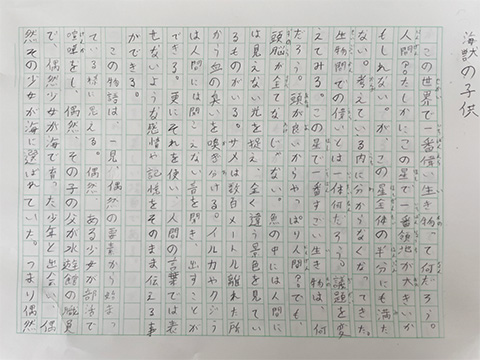 海獣の子供
この世界で一番偉い生き物って何だろう。
人間？たしかにこの星で一番領地が大きいか
もしれない。が、この星全体の半分にも満た
ない。考えている内に分からなくなってきた。
生物間での偉いとは一体何だろう。議題を変
えてみる。この星で一番すごい生き物は、何
だろう。頭が良いからやっぱり人間？でも、
頭脳が全てなんじゃない。魚の中には人間に
は見えない光を捉え、全く違う景色を見てい
るものがいる。サメは数百メートル離れた所
から血の臭いを嗅ぎ分ける。イルカやクジラ
は人間には聞こえない音を聞き、出すことが
できる。更にそれを使い、人間の言葉では表
せないような感情や記憶をそのまま伝える事
ができる。
この物語は、一見、偶然の要素から始まっ
ている様に見える。偶然、ある少女が部活で
喧嘩をし、偶然、その子の父が水族館の職員
で、偶然、海で育った少年と出会い、偶
然その少女が海に選ばれていた。つまり偶然